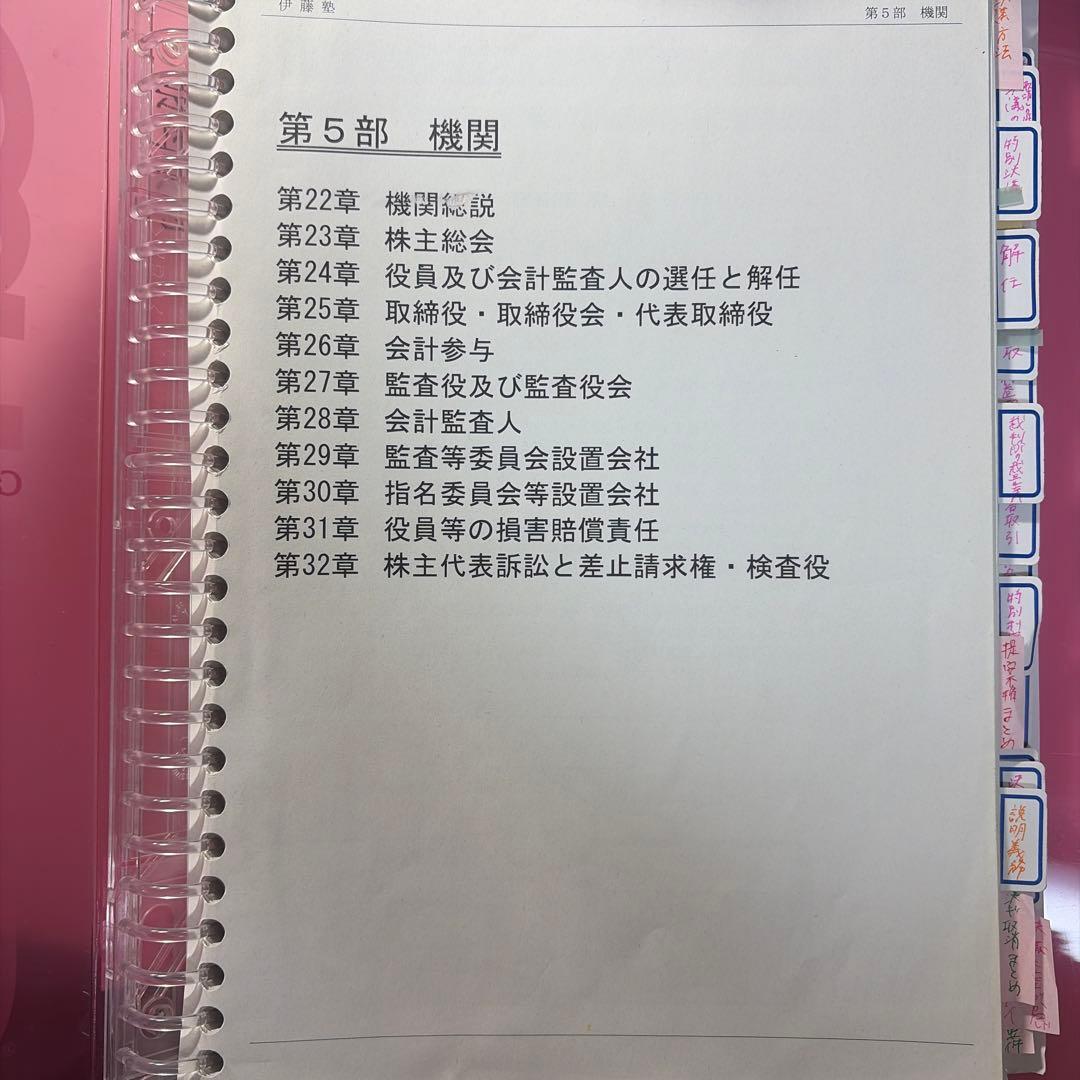 伊藤塾
第5部 機関
第5部 機関
第22章 機関総説
第23章 株主総会
第24章 役員及び会計監査人の選任と解任
第25章 取締役・取締役会・代表取締役
第26章 会計参与
第27章 監査役及び監査役会
第28章 会計監査人
第29章 監査等委員会設置会社
第30章 指名委員会等設置会社
第31章 役員等の損害賠償責任
第32章 株主代表訴訟と差止請求権・検査役
方法
特別決議
解任
取
取引
特別
提案権まとめ
説明義務
取消まとめ